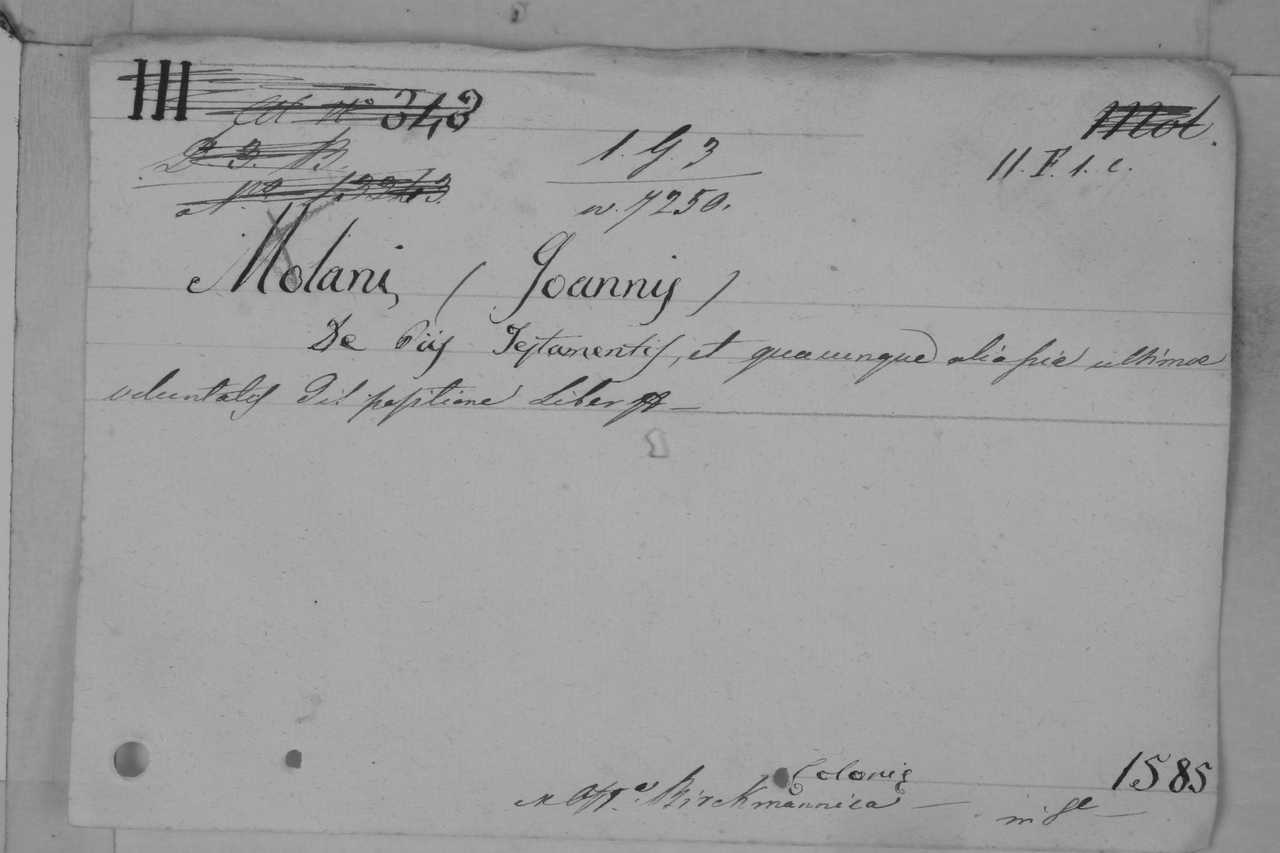 III
343
Mol.
1. G. 3
11. F. 1. c.
n. 7250.
Molani, (Joannis)
De Piis Testamentis, et quacunque alia pia ultimæ
voluntatis Dispositione Liber
Coloniæ
1585
Birckmannica — in 8e —